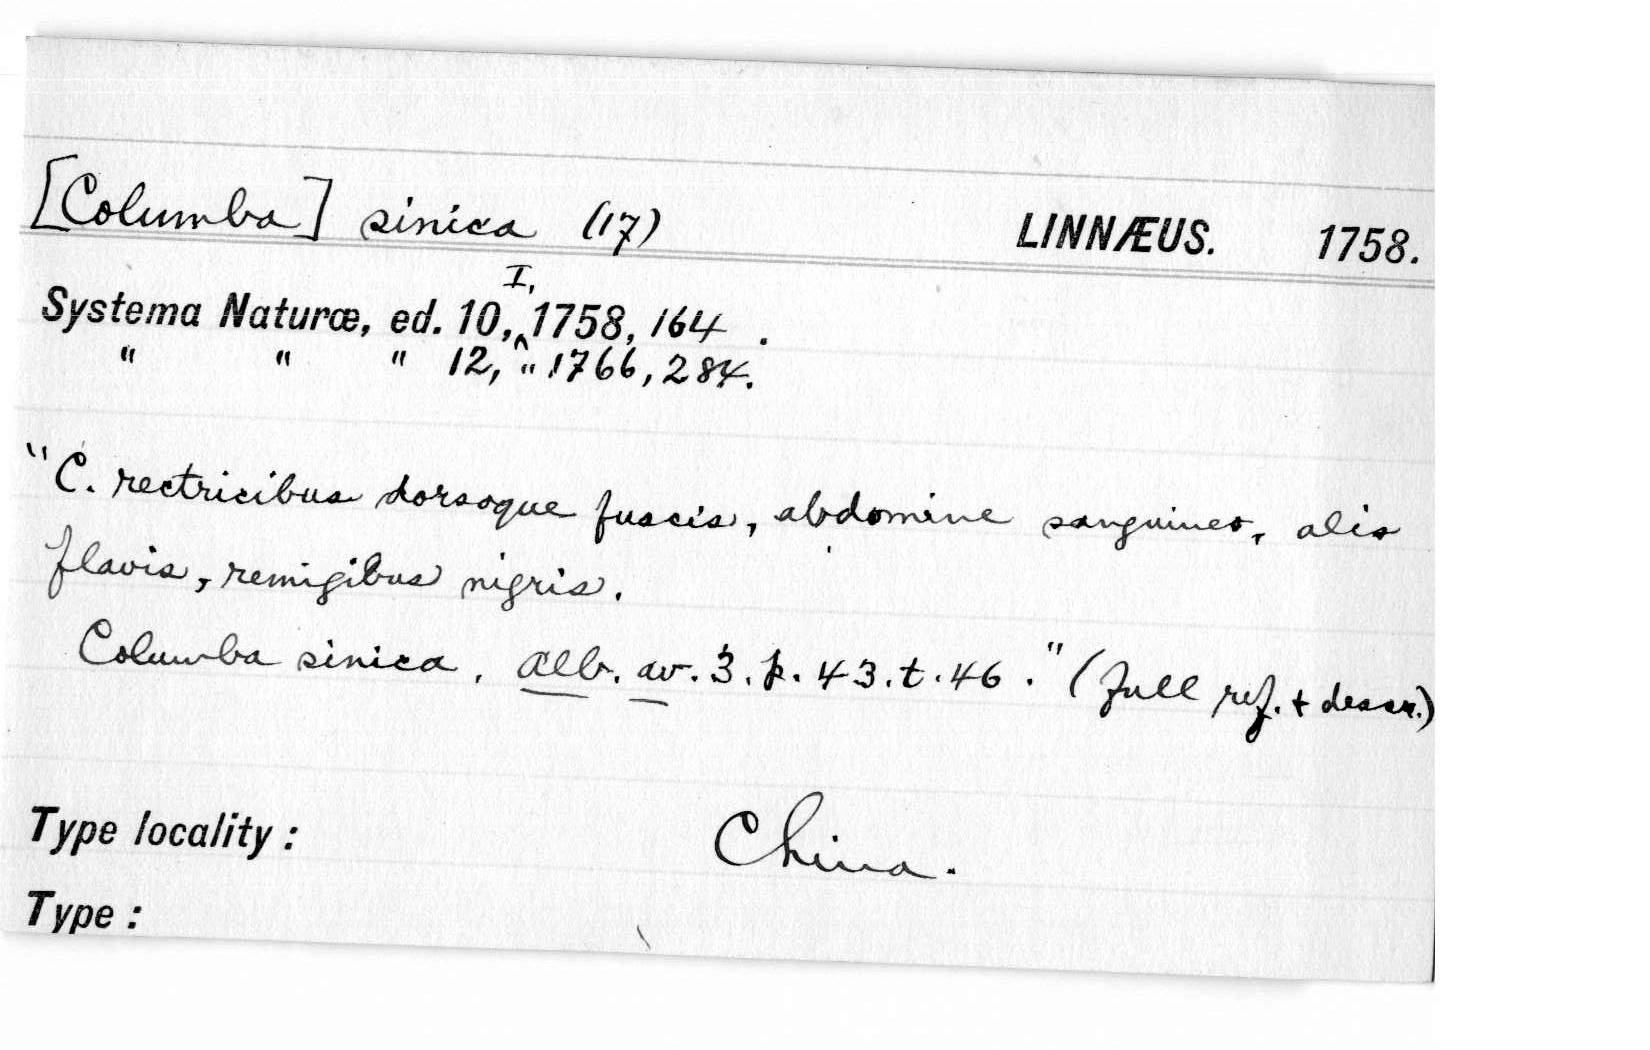 [Columba] sinica (17) LINNÆUS. 1758.
I,
Systema Naturæ, ed. 10,^1758, 164 .
" " " 12, " 1766, 284.
"C. rectricibus dorsoque fuscis, abdomine sanguineo, alis
flavis, remigibus nigris.
Columba sinica. Alb. av. 3. p. 43. t. 46." (full ref. + descr.)
Type locality: China.
Type: